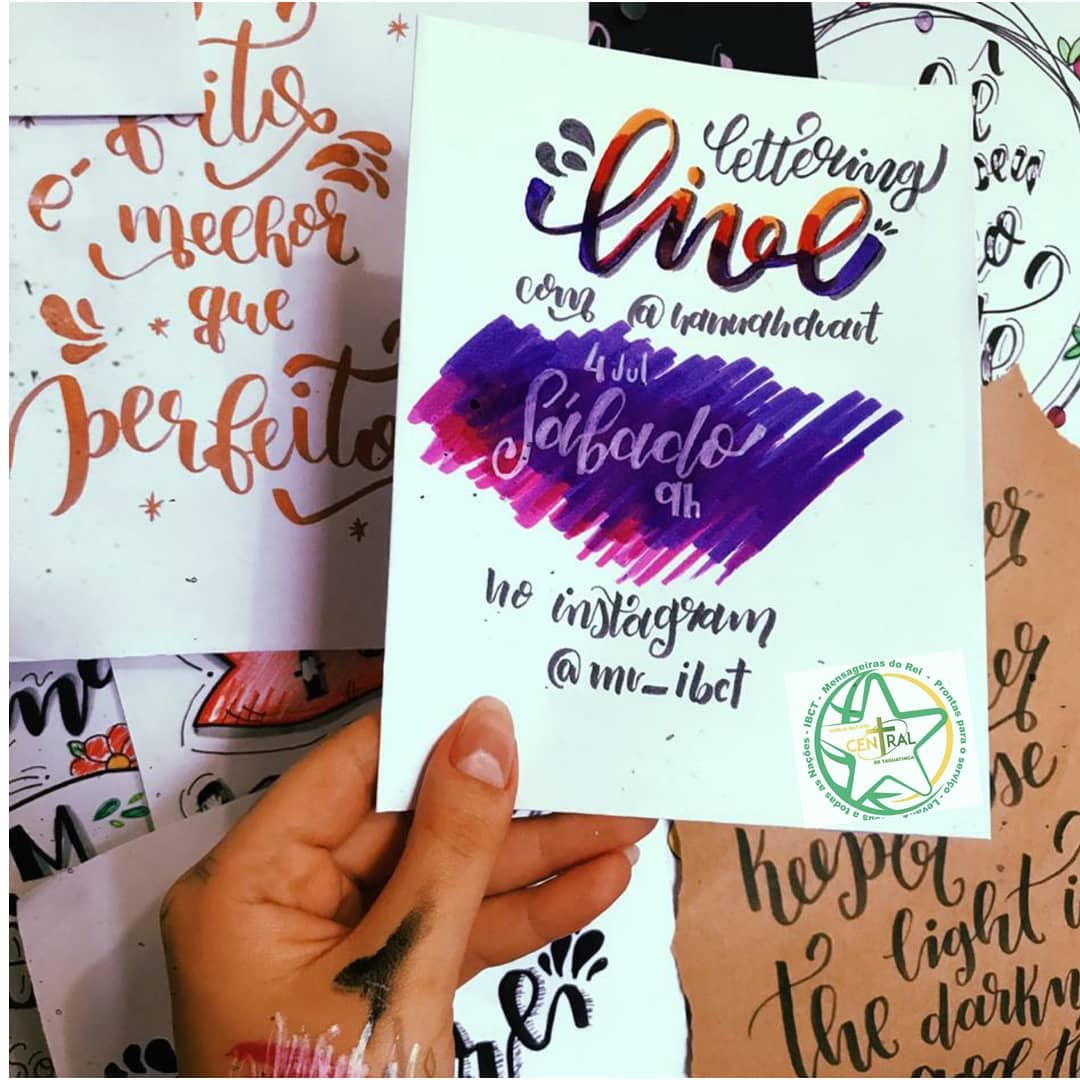 feito
é melhor
que
perfeito
lettering
live
com @hannahdvart
4 Jul
Sábado
9h
no instagram
@mr_ibct
IBCT - Mensageiras do Rei - Prontas para o serviço
a todas as Nações
IGREJA BATISTA
CENTRAL
DE TAGUATINGA
Keeper
light i
the darkn
and t